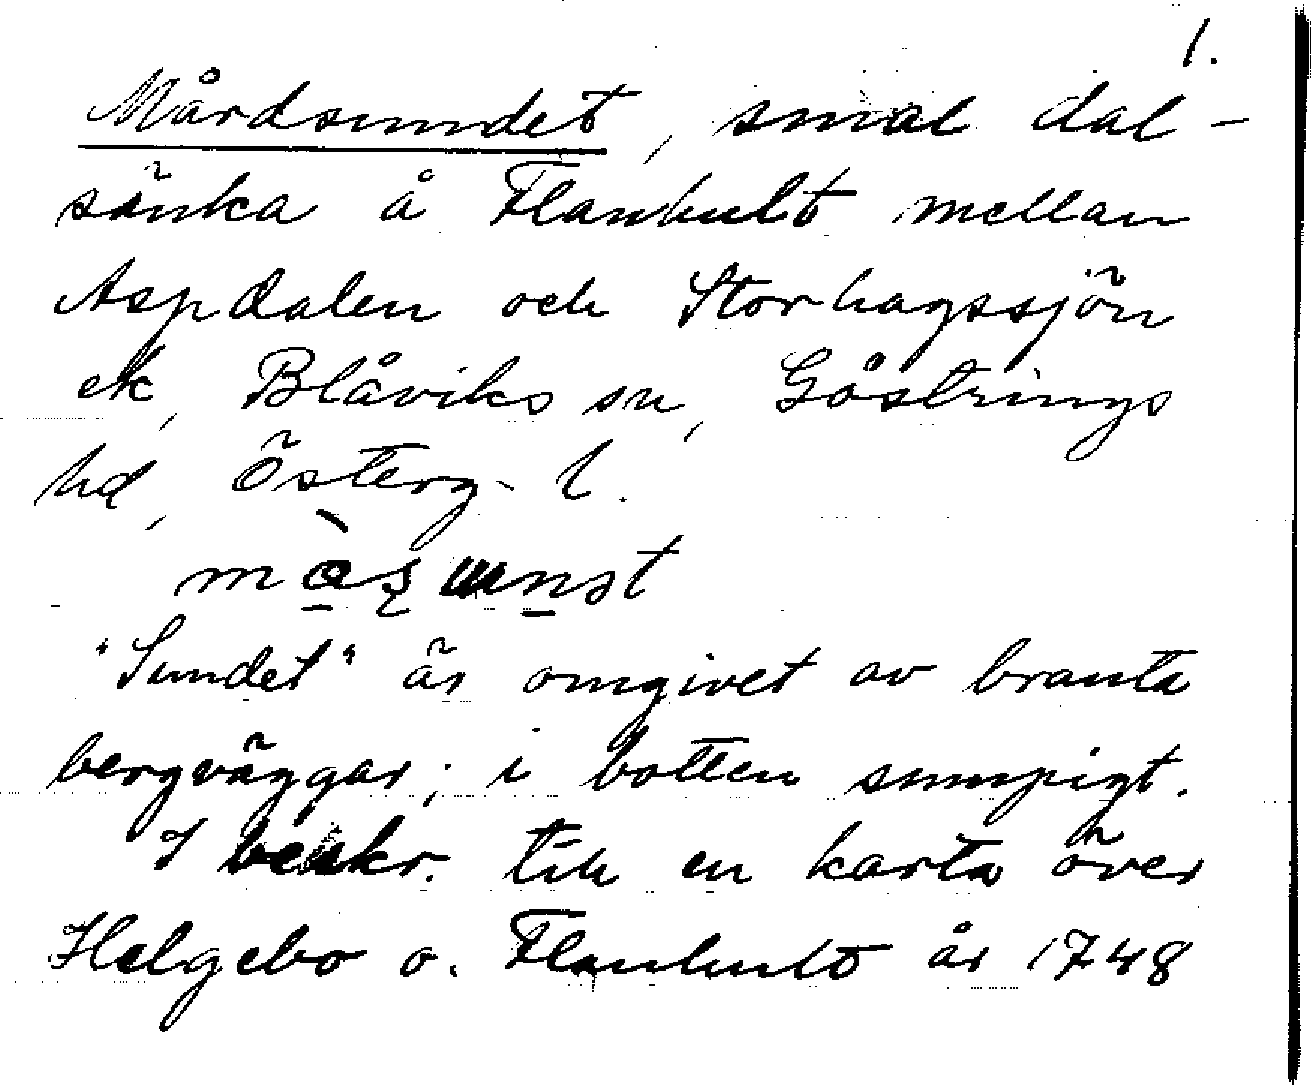 1.
Mårdsundet, smal dal-
sänka å Flankult mellan
Aspdalen och Storhagssjön
ek, Blåviks sn, Göstrings
hd, Österg. l.
"Sundet" är omgivet av branta
bergväggar; i botten sumpigt.
I beskr. till en karta över
Helgebo o. Flankult år 1748